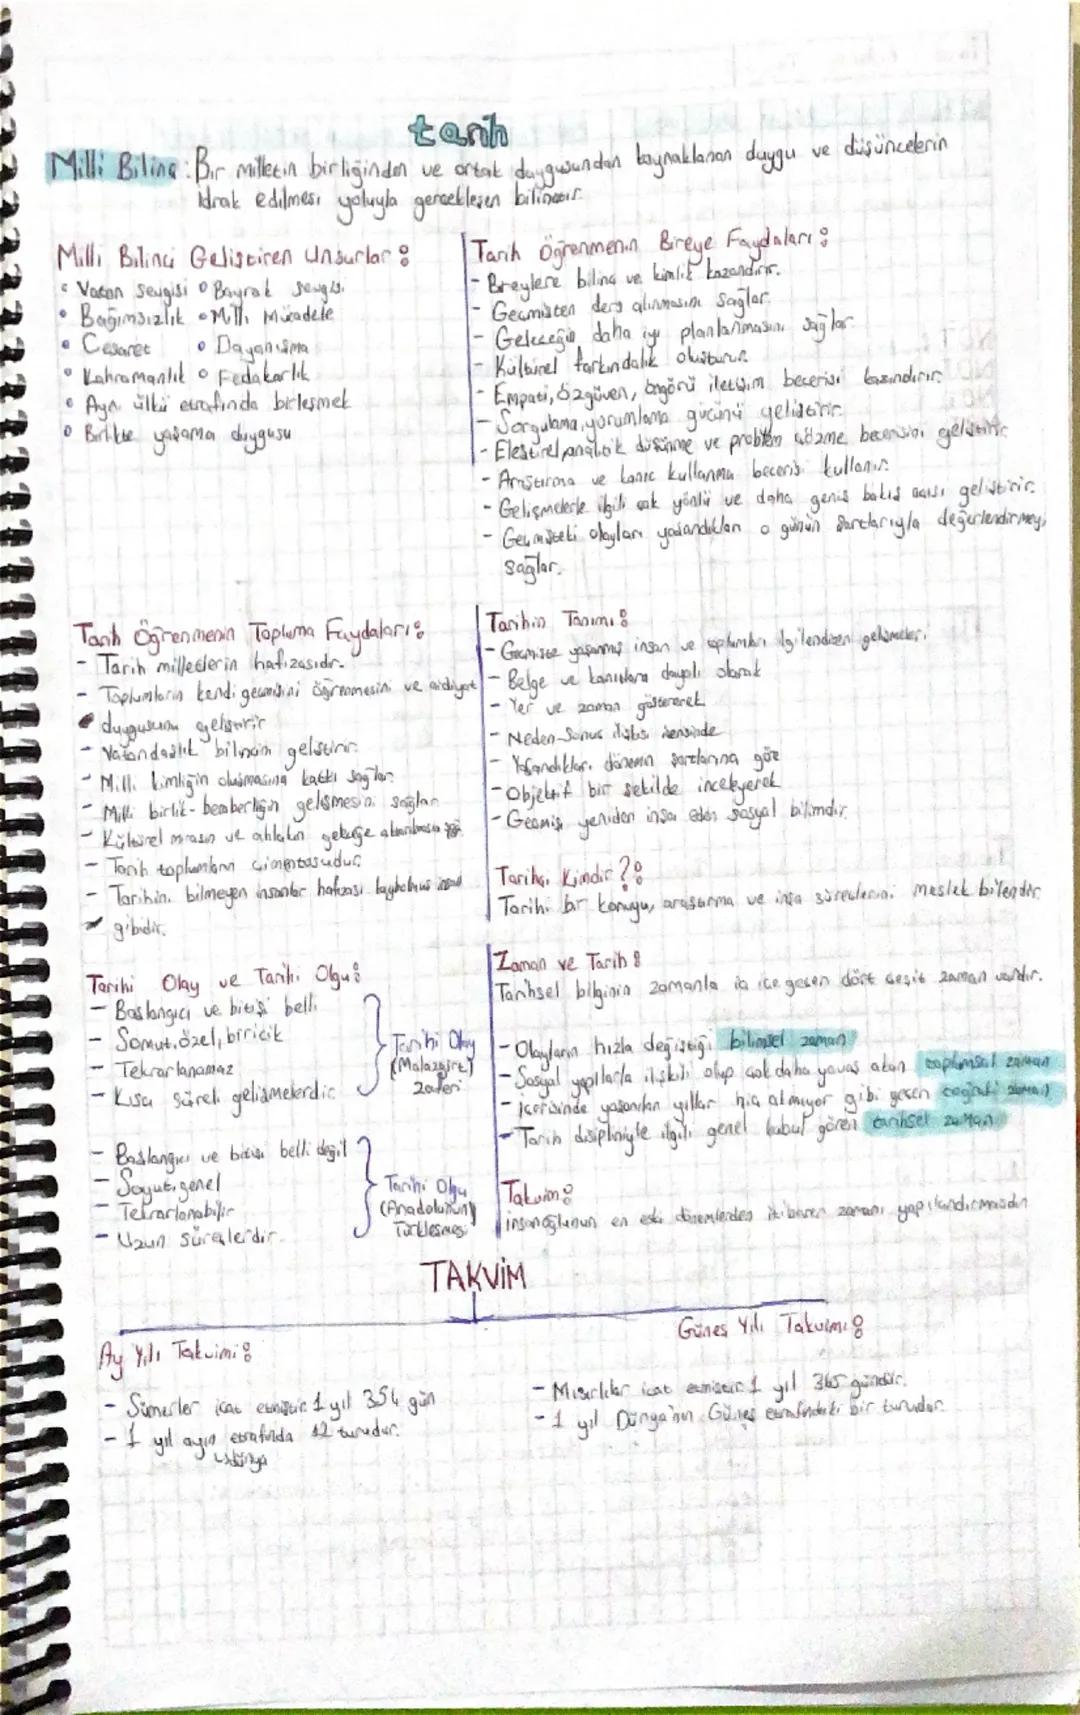 tarih
Milli Bilinç: Bir milletin birliğinden ve ortak duygusundan kaynaklanan duygu ve düşüncelerin
idrak edilmesi yoluyla gerçekleşen bilinçtir.
Milli Bilinci Geliştiren Unsurlar:
• Vatan sevgisi • Bayrak sevgisi
• Bağımsızlık • Milli Mücadele
• Cesaret • Dayanışma
• Kahramanlık • Fedakarlık
• Aynı ülkü etrafında birleşmek
• Birlikte yaşama duygusu
Tarih Öğrenmenin Bireye Faydaları:
- Bireylere bilinç ve kimlik kazandırır.
- Geçmişten ders alınmasını sağlar.
- Geleceğin daha iyi planlanmasını sağlar
- Kültürel farkındalık oluşturur.
- Empati, özgüven, öngörü iletişim becerisi kazandırır.
- Sorgulama, yorumlama gücünü geliştirir.
- Eleştirel, analitik düşünme ve problem çözme becerisini geliştirir.
- Araştırma ve kanıt kullanma becerisi kullanır.
- Gelişmelerle ilgili çok yönlü ve daha geniş bakış açısı geliştirir.
- Geçmişteki olayları yaşandıkları o günün şartlarıyla değerlendirmeyi
sağlar.
Tarih Öğrenmenin Topluma Faydaları:
- Tarih milletlerin hafızasıdır.
- Toplumların kendi geçmişini öğrenmesini ve aidiyat
duygusunu geliştirir
- Vatandaşlık bilincini geliştirir.
- Milli kimliğin oluşmasına katkı sağlar.
- Milli birlik-beraberliğin gelişmesini sağlar
- Kültürel mirasın ve ahlakın geleceğe aktarılmasını
- Tarih toplumların çimentosudur.
- Tarihini bilmeyen insanlar hafızası kaybolmuş insan
gibidir.
Tarihin Tanımı:
- Geçmişte yaşanmış insan ve toplumları ilgilendiren gelişmeler.
- Belge ve kanıtlara dayalı olarak
- Yer ve zaman göstererek
- Neden-Sonuç ilişkisi içerisinde
- Yaşandıkları dönemin şartlarına göre
- Objektif bir şekilde inceleyerek
- Geçmişi yeniden inşa eden sosyal bilimdir.
Tarihçi Kimdir?:
Tarihi bir konuyu, araştırma ve inşa süreçlerini meslek bilendir.
Tarihi Olay ve Tarihi Olgu:
- Başlangıcı ve bitişi belli
- Somut, özel, biricik
- Tekrarlanamaz
- Kısa süreli gelişmelerdir.
Tarihi Olay
(Malazgirt)
zaferi
- Başlangıcı ve bitişi belli değil
- Soyut, genel
- Tekrarlanabilir
- Uzun süreçlerdir.
Tarihi Olgu
(Anadolunun)
Türkleşmesi
Zaman ve Tarih:
Tarihsel bilginin zamanla iç içe geçen dört çeşit zaman vardır.
- Olayların hızla değiştiği bilimsel zaman
- Sosyal yapılarla ilişkili olup çok daha yavaş akan toplumsal zaman
- İçerisinde yaşanılan yıllar hiç akmıyor gibi geçen coğrafi zaman
- Tarih disipliniyle ilgili genel kabul gören tarihsel zaman
Takvim:
insanoğlunun en eski dönemlerden itibaren zamanı yapılandırmasıdır
TAKVİM
Ay Yılı Takvimi:
- Sümerler icat etmiştir. 1 yıl 354 gün
- 1 yıl ayın etrafında 12 turudur.
Dünya
Güneş Yılı Takvimi:
- Mısırlılar icat etmiştir. 1 yıl 365 gündür.
- 1 yıl Dünya'nın Güneş etrafındaki bir turudur.